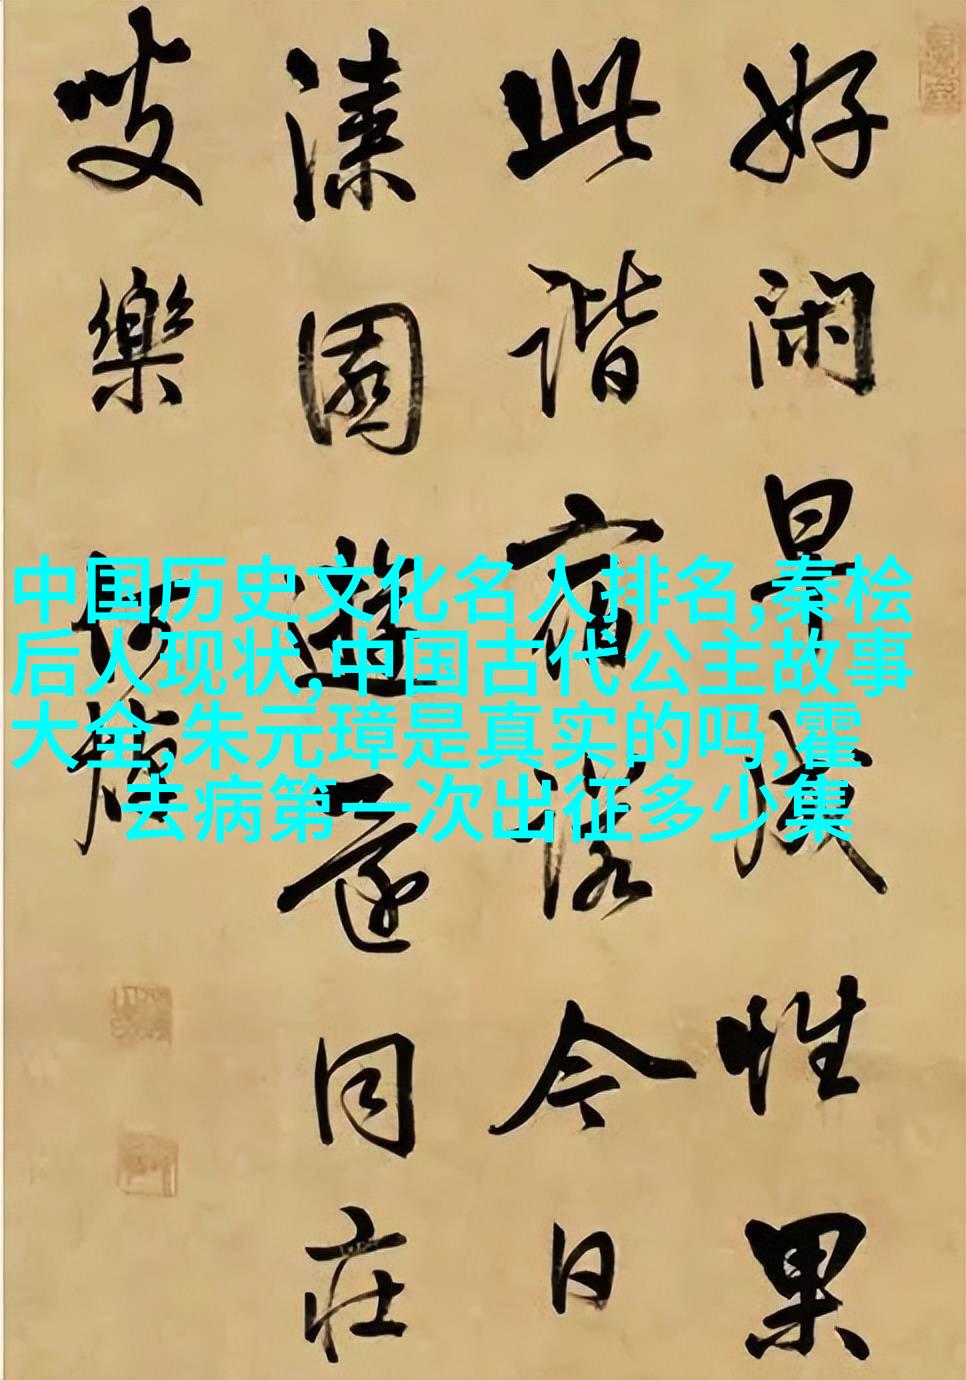 好閑早成性果
此諧宿諾今日
漆園遊還同庄
叟樂
中国历史文化名人排名,秦桧
后人现状,中国古代公主故事
大全,朱元璋是真实的吗,霍
去病第一次出征多少集